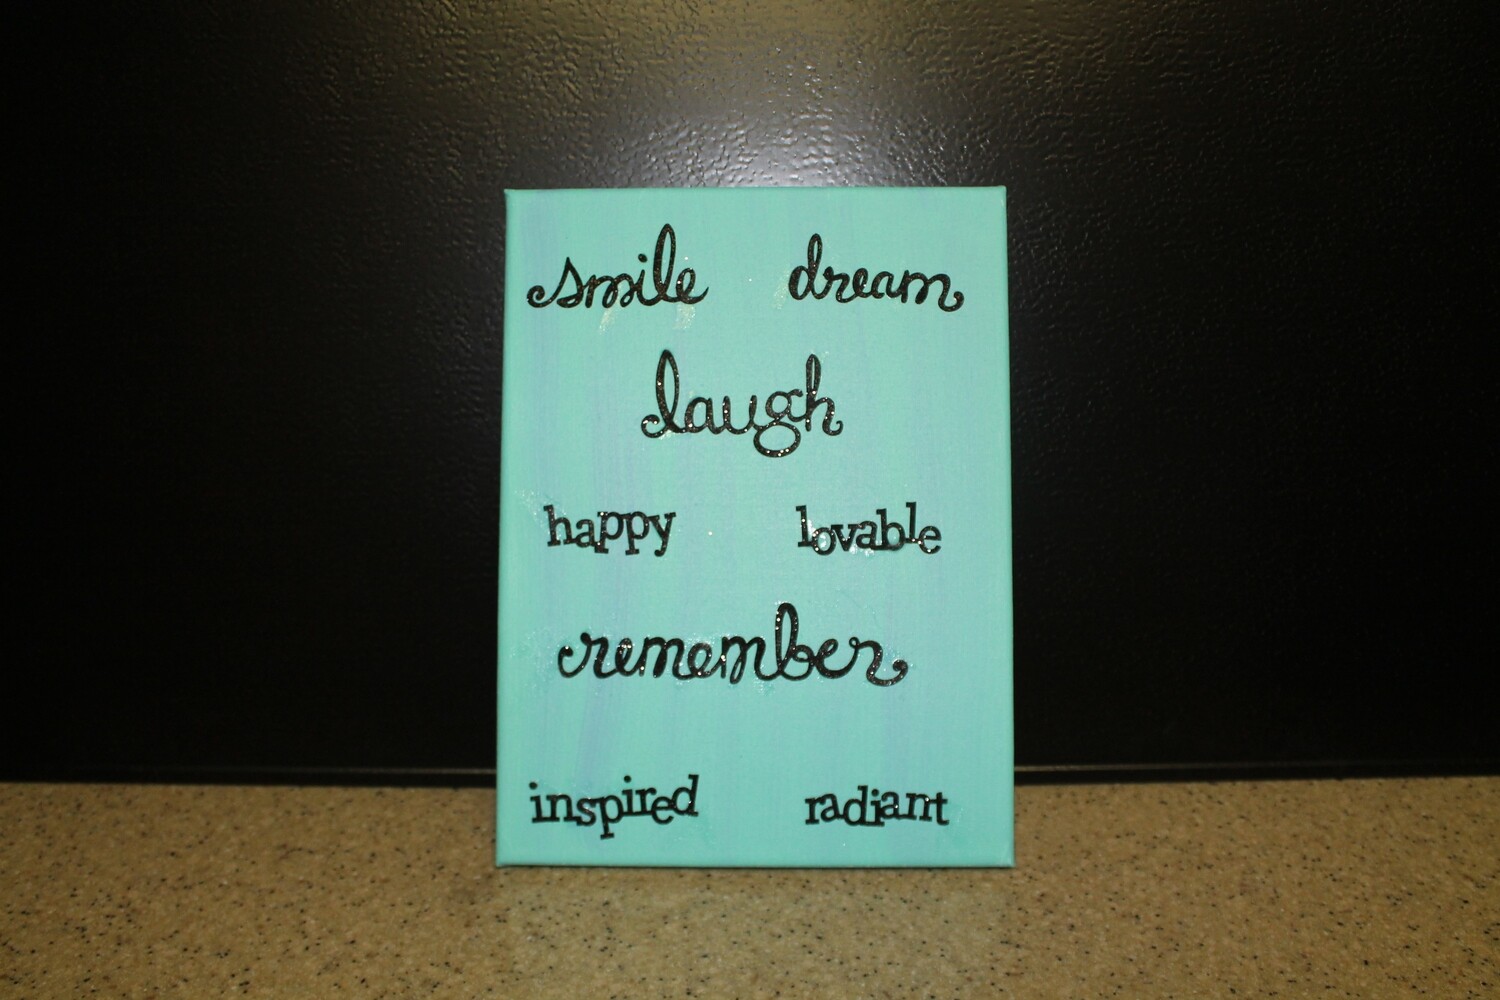 smile dream
laugh
happy lovable
remember
inspired radiant